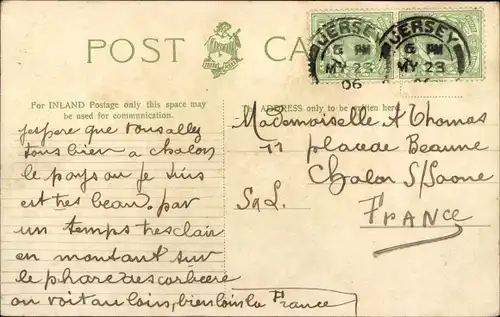 POST CA
JERSEY
6 PM
MY 23
06
JERSEY
6 PM
MY 23
06
For INLAND Postage only this space may
be used for communication.
The ADDRESS only to be written here.
jespere que vous allez
tous bien a chalon
le pays ou je suis
est tres beau. par
un temps tres clair
en montant sur
le phare des corbiere
on voit au loin, bien loin la France
Mademoiselle A Thomas
11 place de Beaune
Chalon S/Saone
S&L.
FRANCE